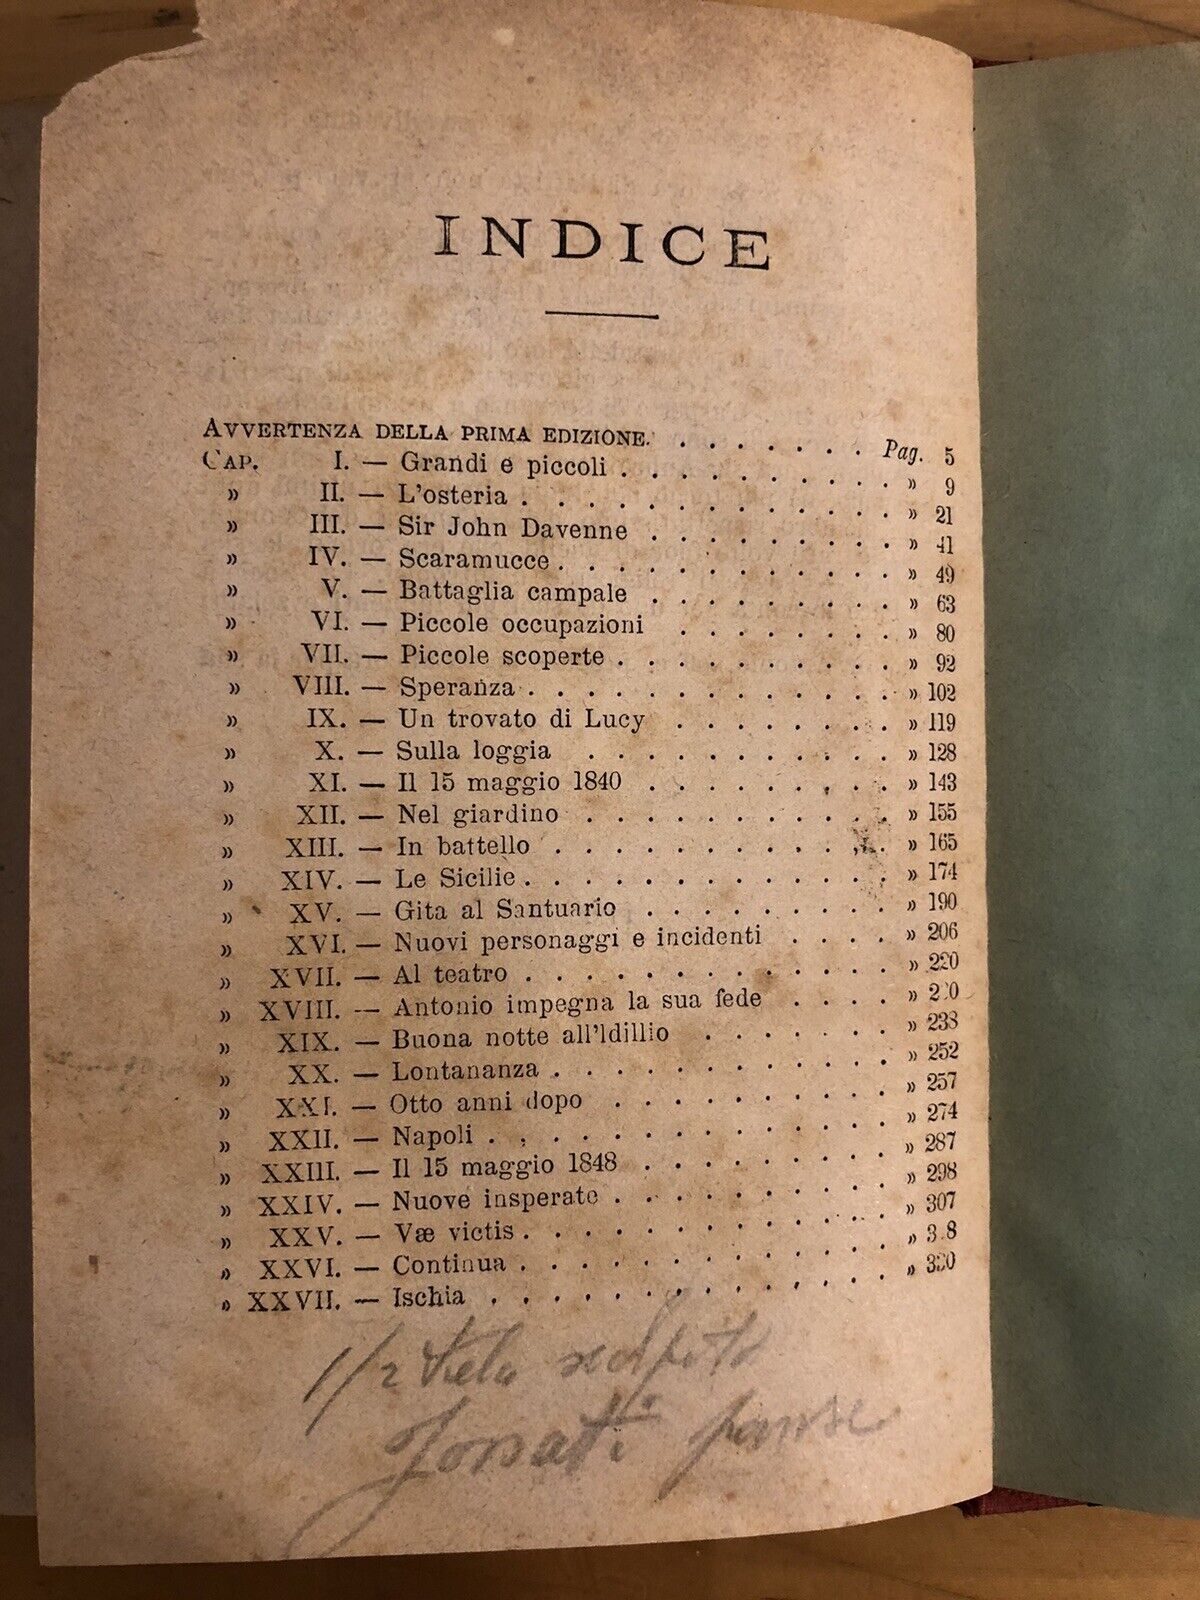 INDICE
AVVERTENZA DELLA PRIMA EDIZIONE. . . . . . . . Pag. 5
CAP. I. — Grandi e piccoli . . . . . . . . . . » 9
» II. — L'osteria . . . . . . . . . . . . . » 21
» III. — Sir John Davenne . . . . . . . . . » 41
» IV. — Scaramucce . . . . . . . . . . . . » 49
» V. — Battaglia campale . . . . . . . . . » 63
» VI. — Piccole occupazioni . . . . . . . . » 80
» VII. — Piccole scoperte . . . . . . . . . . » 92
» VIII. — Speranza . . . . . . . . . . . . . » 102
» IX. — Un trovato di Lucy . . . . . . . . » 119
» X. — Sulla loggia . . . . . . . . . . . » 128
» XI. — Il 15 maggio 1840 . . . . . . . . . » 143
» XII. — Nel giardino . . . . . . . . . . . » 155
» XIII. — In battello . . . . . . . . . . . . » 165
» XIV. — Le Sicilie . . . . . . . . . . . . . » 174
» XV. — Gita al Santuario . . . . . . . . . » 190
» XVI. — Nuovi personaggi e incidenti . . . . » 206
» XVII. — Al teatro . . . . . . . . . . . . . » 220
» XVIII. — Antonio impegna la sua fede . . . . »
» XIX. — Buona notte all'Idillio . . . . . . . » 238
» XX. — Lontananza . . . . . . . . . . . . » 252
» XXI. — Otto anni dopo . . . . . . . . . . » 257
» XXII. — Napoli . . . . . . . . . . . . . . » 274
» XXIII. — Il 15 maggio 1848 . . . . . . . . . » 287
» XXIV. — Nuove insperate . . . . . . . . . . » 298
» XXV. — Væ victis . . . . . . . . . . . . . » 307
» XXVI. — Continua . . . . . . . . . . . . . »
» XXVII. — Ischia . . . . . . . . . . . . . . »
1/2 tela